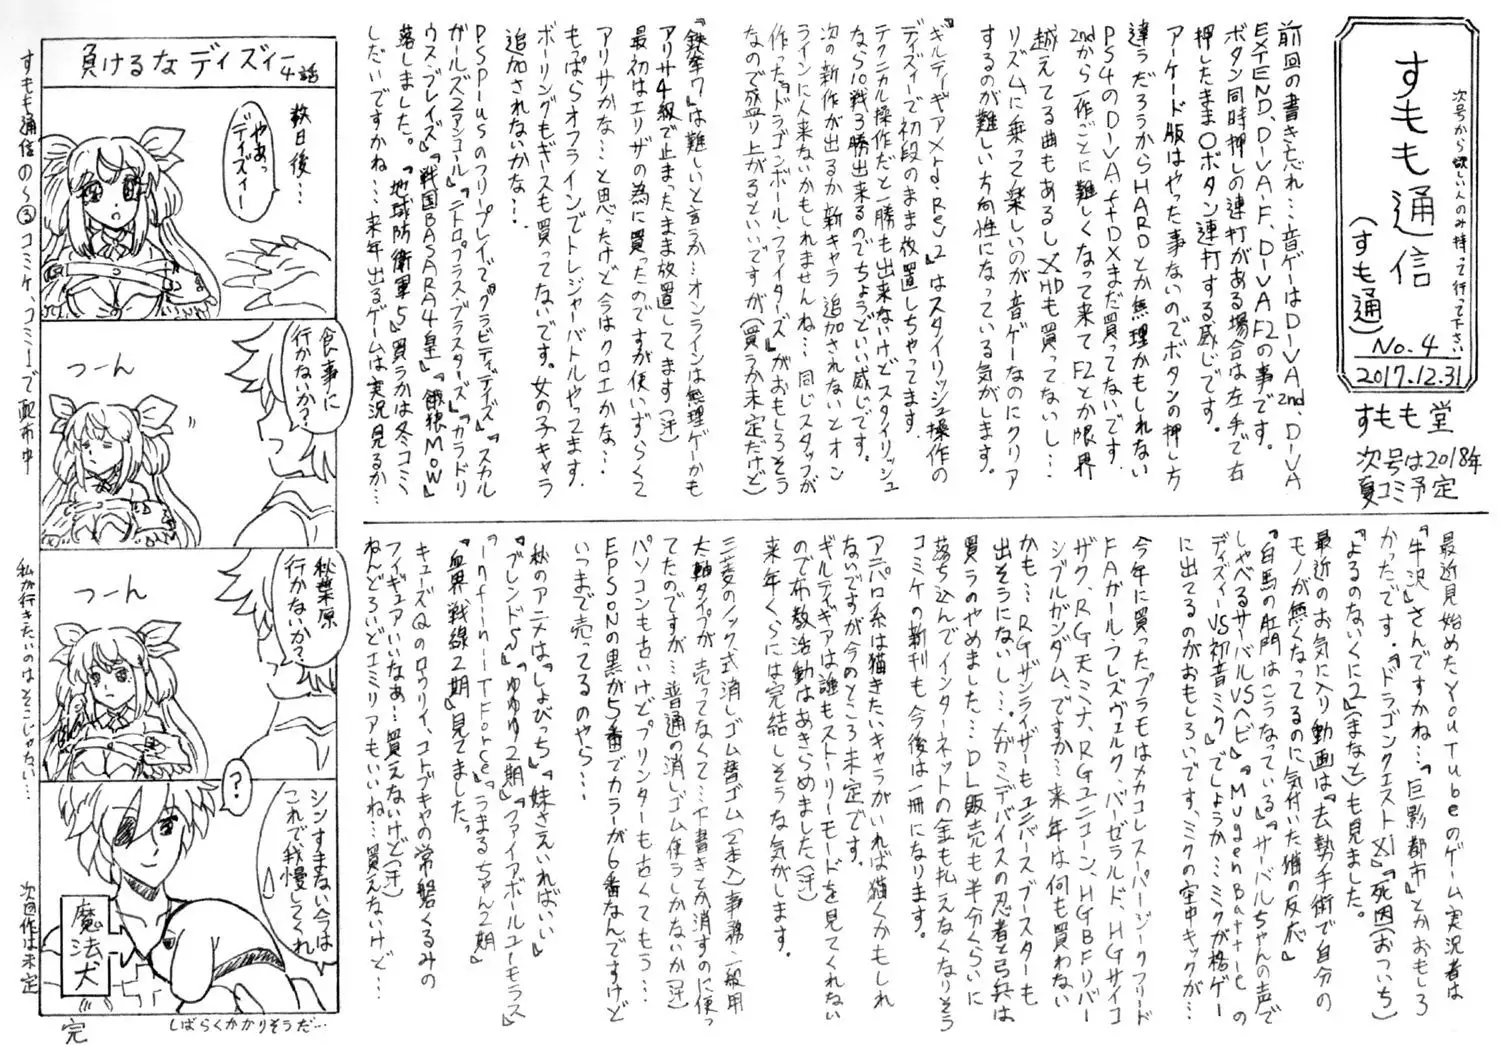 次号から欲しい人のみ持って行って下さい
すもも通信
(すも通)
No.4
2017.12.31
すもも堂
次号は2018年
夏コミ予定
前回の書き忘れ…音ゲーはDIVA2nd、DIVA
EXTEND、DIVA-F、DIVAF2の事です。
ボタン同時押しの連打がある場合は左手で右
押したまま〇ボタン連打する感じです。
アーケード版はやった事ないのでボタンの押し方
違うだろうからHARDとか無理かもしれない
PS4のDIVAftDXまだ買ってないです。
2ndから一作ごとに難しくなって来てF2とか限界
越えてる曲もあるしXHDも買ってないし…
リズムに乗って楽しいのが音ゲーなのにクリア
するのが難しい方向性になっている気がします。
『ギルティギアXrdRev2』はスタイリッシュ操作の
ディズィーで初段のまま放置しちゃってます。
テクニカル操作だと一勝も出来ないけどスタイリッシュ
なら10戦3勝出来るのでちょうどいい感じです。
次の新作が出るか新キャラ追加されないとオン
ラインに人来ないかもしれませんね…同じスタッフが
作った『ドラゴンボール・ファイターズ』がおもしろそう
なので盛り上がるといいですが(買うか未定だけど)
『鉄拳7』は難しいと言うか…オンラインは無理ゲーかも
アリサ4級で止まったまま放置してます(汗)
最初はエリザの為に買ったのですが使いずらくて
アリサかな…と思ったけど今はクロエかな…
もっぱらオフラインでトレジャーバトルやってます。
ボーリングもギースも買ってないです。女の子キャラ
追加されないかな…
PSPlusのフリープレイで『グラビティデイズ』『スカル
ガールズ2アンコール』『ニトロプラスブラスターズ』『カラドリ
ウス・ブレイズ』『戦国BASARA4皇』『餓狼MOW』
落しました。『地球防衛軍5』買うかは冬コミ
しだいですかね…来年出るゲームは実況見るか…
最近見始めたYouTubeのゲーム実況者は
『牛沢』さんですかね…『巨影都市』とかおもしろ
かったです。『ドラゴンクエストXI』『死因(おついち)
『よるのないくに2(まなと)も見ました。
最近のお気に入り動画は『去勢手術で自分の
モノが無くなってるのに気付いた猫の反応』
『白馬の肛門はこうなっている』『サーバルちゃんの声で
しゃべるサーバルVSヘビ』『MugenBattleの
ディズィーVS初音ミク』でしょうか…ミクが格ゲー
に出てるのがおもしろいです、ミクの空中キックが…
今年に買ったプラモはメカコレスーパージークフリード
FAガールフレズヴェルク、バーゼラルド、HGサイコ
ザク、RG天ミナ、RGユニコーン、HGBFリバー
シブルガンダム、ですか…来年は何も買わない
かも…RGザンライザーもユニバースブスターも
出そうにないし…だがミデバイスの忍者と弓兵は
買うのやめました…DL販売も半分くらいに
落ち込んでインターネットの金も払えなくなりそう
コミケの新刊も今後は一冊になります。
アニパロ系は描きたいキャラがいれば描くかもしれ
ないですが今のところ未定です。
ギルティギアは誰もストーリーモードを見てくれない
ので布教活動はあきらめました(汗)
来年くらには完結しそうな気がします。
三菱のノック式消しゴム替ゴム(2本入)事務一般用
太軸タイプが売ってなくて…下書きとか消すのに使っ
てたのですが…普通の消しゴム使うしかないか(汗)
パソコンも古いけどプリンターも古くてもう…
EPSONの黒が5番でカラーが6番なんですけど
いつまで売ってるのやら…
秋のアニメは『しょびっち』『妹さえいればいい』
『ブレンドS』『ゆゆゆ2期』『ファイアボールユーモラス』
『InfiniTForce』『うまるちゃん2期』
『血界戦線2期』見てました。
キューズQのロウリィ、コトブキヤの常磐くるみの
フィギュアいいなぁ…買えないけど(汗)
ねんどろいどエミリアもいいね…買えないけど…
負けるなディズィー4話
数日後…
やあっ
ディズィー
食事に
行かないか?
つーん
秋葉原
行かないか?
つーん
?
シンすまない今は
これで我慢してくれ
魔法犬
しばらくかかりそうだ…
完
すもも通信の1~③コミケ、コミ1で配布中
私が行きたいのはそこじゃない…
次回作は未定